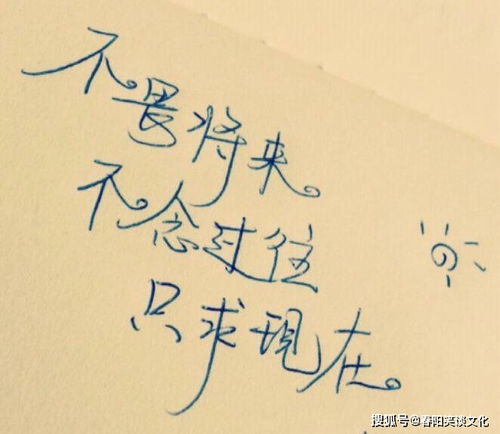 不畏将来。
不念过往
只求現在。
搜狐号@春阳笑谈文化